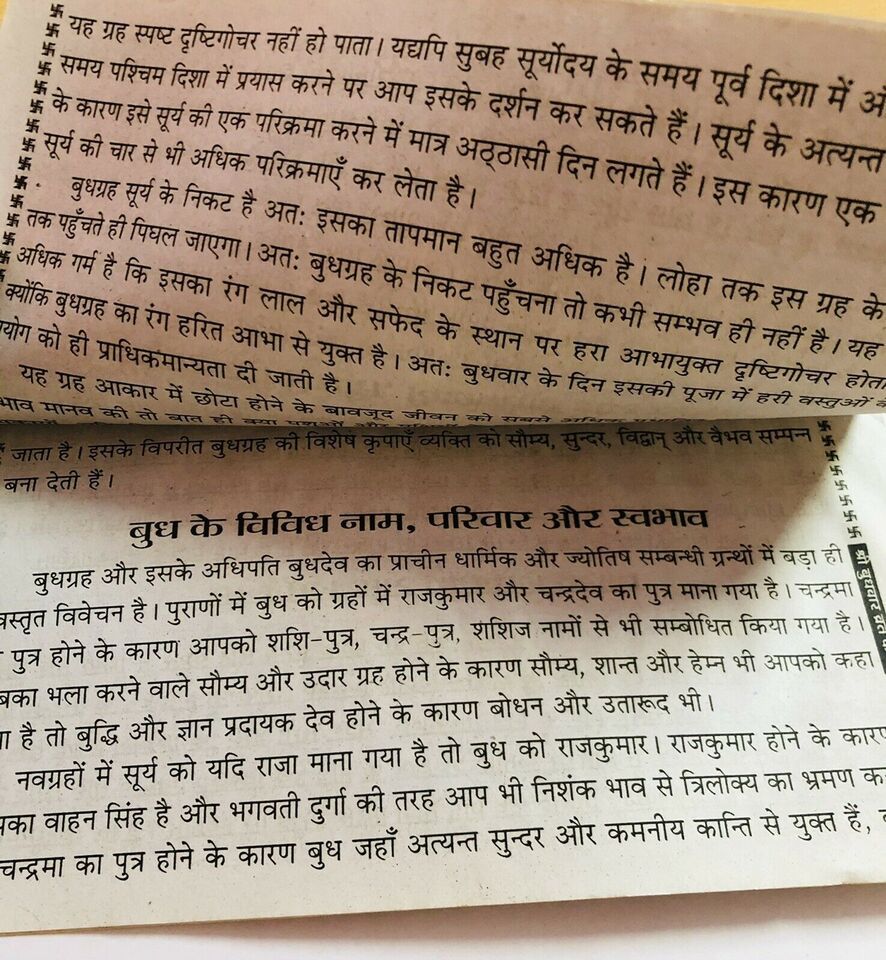 यह ग्रह स्पष्ट दृष्टिगोचर नहीं हो पाता। यद्यपि सुबह सूर्योदय के समय पूर्व दिशा में
समय पश्चिम दिशा में प्रयास करने पर आप इसके दर्शन कर सकते हैं। सूर्य के अत्यन्त
के कारण इसे सूर्य की एक परिक्रमा करने में मात्र अठ्ठासी दिन लगते हैं। इस कारण एक
सूर्य की चार से भी अधिक परिक्रमाएँ कर लेता है।
बुधग्रह सूर्य के निकट है अतः इसका तापमान बहुत अधिक है। लोहा तक इस ग्रह के
तक पहुँचते ही पिघल जाएगा। अतः बुधग्रह के निकट पहुँचना तो कभी सम्भव ही नहीं है। यह
अधिक गर्म है कि इसका रंग लाल और सफेद के स्थान पर हरा आभायुक्त दृष्टिगोचर होता
क्योंकि बुधग्रह का रंग हरित आभा से युक्त है। अतः बुधवार के दिन इसकी पूजा में हरी वस्तुओं
को ही प्राधिकमान्यता दी जाती है।
यह ग्रह आकार में छोटा होने के बावजूद जीवन को सबसे अधिक
मानव की तो बात ही क्या
जाता है। इसके विपरीत बुधग्रह की विशेष कृपाएँ व्यक्ति को सौम्य, सुन्दर, विद्वान् और वैभव सम्पन्न
बना देती हैं।
बुध के विविध नाम, परिवार और स्वभाव
बुधग्रह और इसके अधिपति बुधदेव का प्राचीन धार्मिक और ज्योतिष सम्बन्धी ग्रन्थों में बड़ा ही
वस्तृत विवेचन है। पुराणों में बुध को ग्रहों में राजकुमार और चन्द्रदेव का पुत्र माना गया है। चन्द्रमा
पुत्र होने के कारण आपको शशि-पुत्र, चन्द्र-पुत्र, शशिज नामों से भी सम्बोधित किया गया है।
बका भला करने वाले सौम्य और उदार ग्रह होने के कारण सौम्य, शान्त और हेम्न भी आपको कहा
है तो बुद्धि और ज्ञान प्रदायक देव होने के कारण बोधन और उतारूद भी।
नवग्रहों में सूर्य को यदि राजा माना गया है तो बुध को राजकुमार। राजकुमार होने के कारण
का वाहन सिंह है और भगवती दुर्गा की तरह आप भी निशंक भाव से त्रिलोक्य का भ्रमण
चन्द्रमा का पुत्र होने के कारण बुध जहाँ अत्यन्त सुन्दर और कमनीय कान्ति से युक्त हैं,
श्री बुधवार व्रत